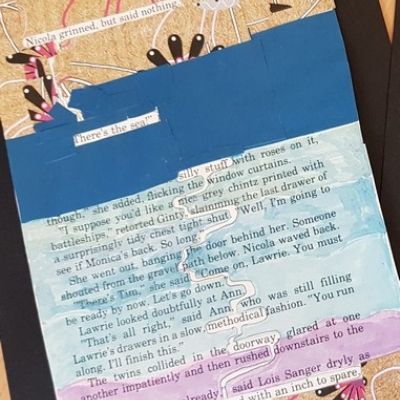 Nicola grinned, but said nothing.
There's the sea!"
silly stuff with roses on it,
though," she added, flicking the window curtains.
"I suppose you'd like a nice grey chintz printed with
battleships," retorted Ginty, slamming the last drawer of
a surprisingly tidy chest tight shut. "Well, I'm going to
see if Monica's back. So long."
She went out, banging the door behind her. Someone
shouted from the gravel path below. Nicola waved back.
"There's Tim," she said. "Come on, Lawrie. You must
be ready by now. Let's go down."
Lawrie looked doubtfully at Ann.
"That's all right," said Ann, who was still filling
Lawrie's drawers in a slow, methodical fashion. "You run
along. I'll finish this."
The twins collided in the doorway, glared at one
another impatiently and then rushed downstairs to the
already," said Lois Sanger dryly as
with an inch to spare,